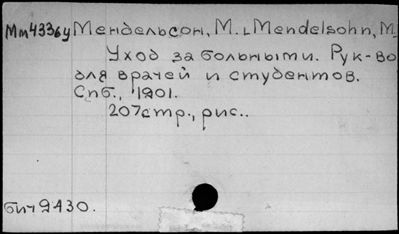 Мм4336у Мендельсон, М. ⌊Mendelsohn, M.
Уход за больными. Рук-во
для врачей и студентов.
Спб., 1901.
207стр., рис..
бич9430.